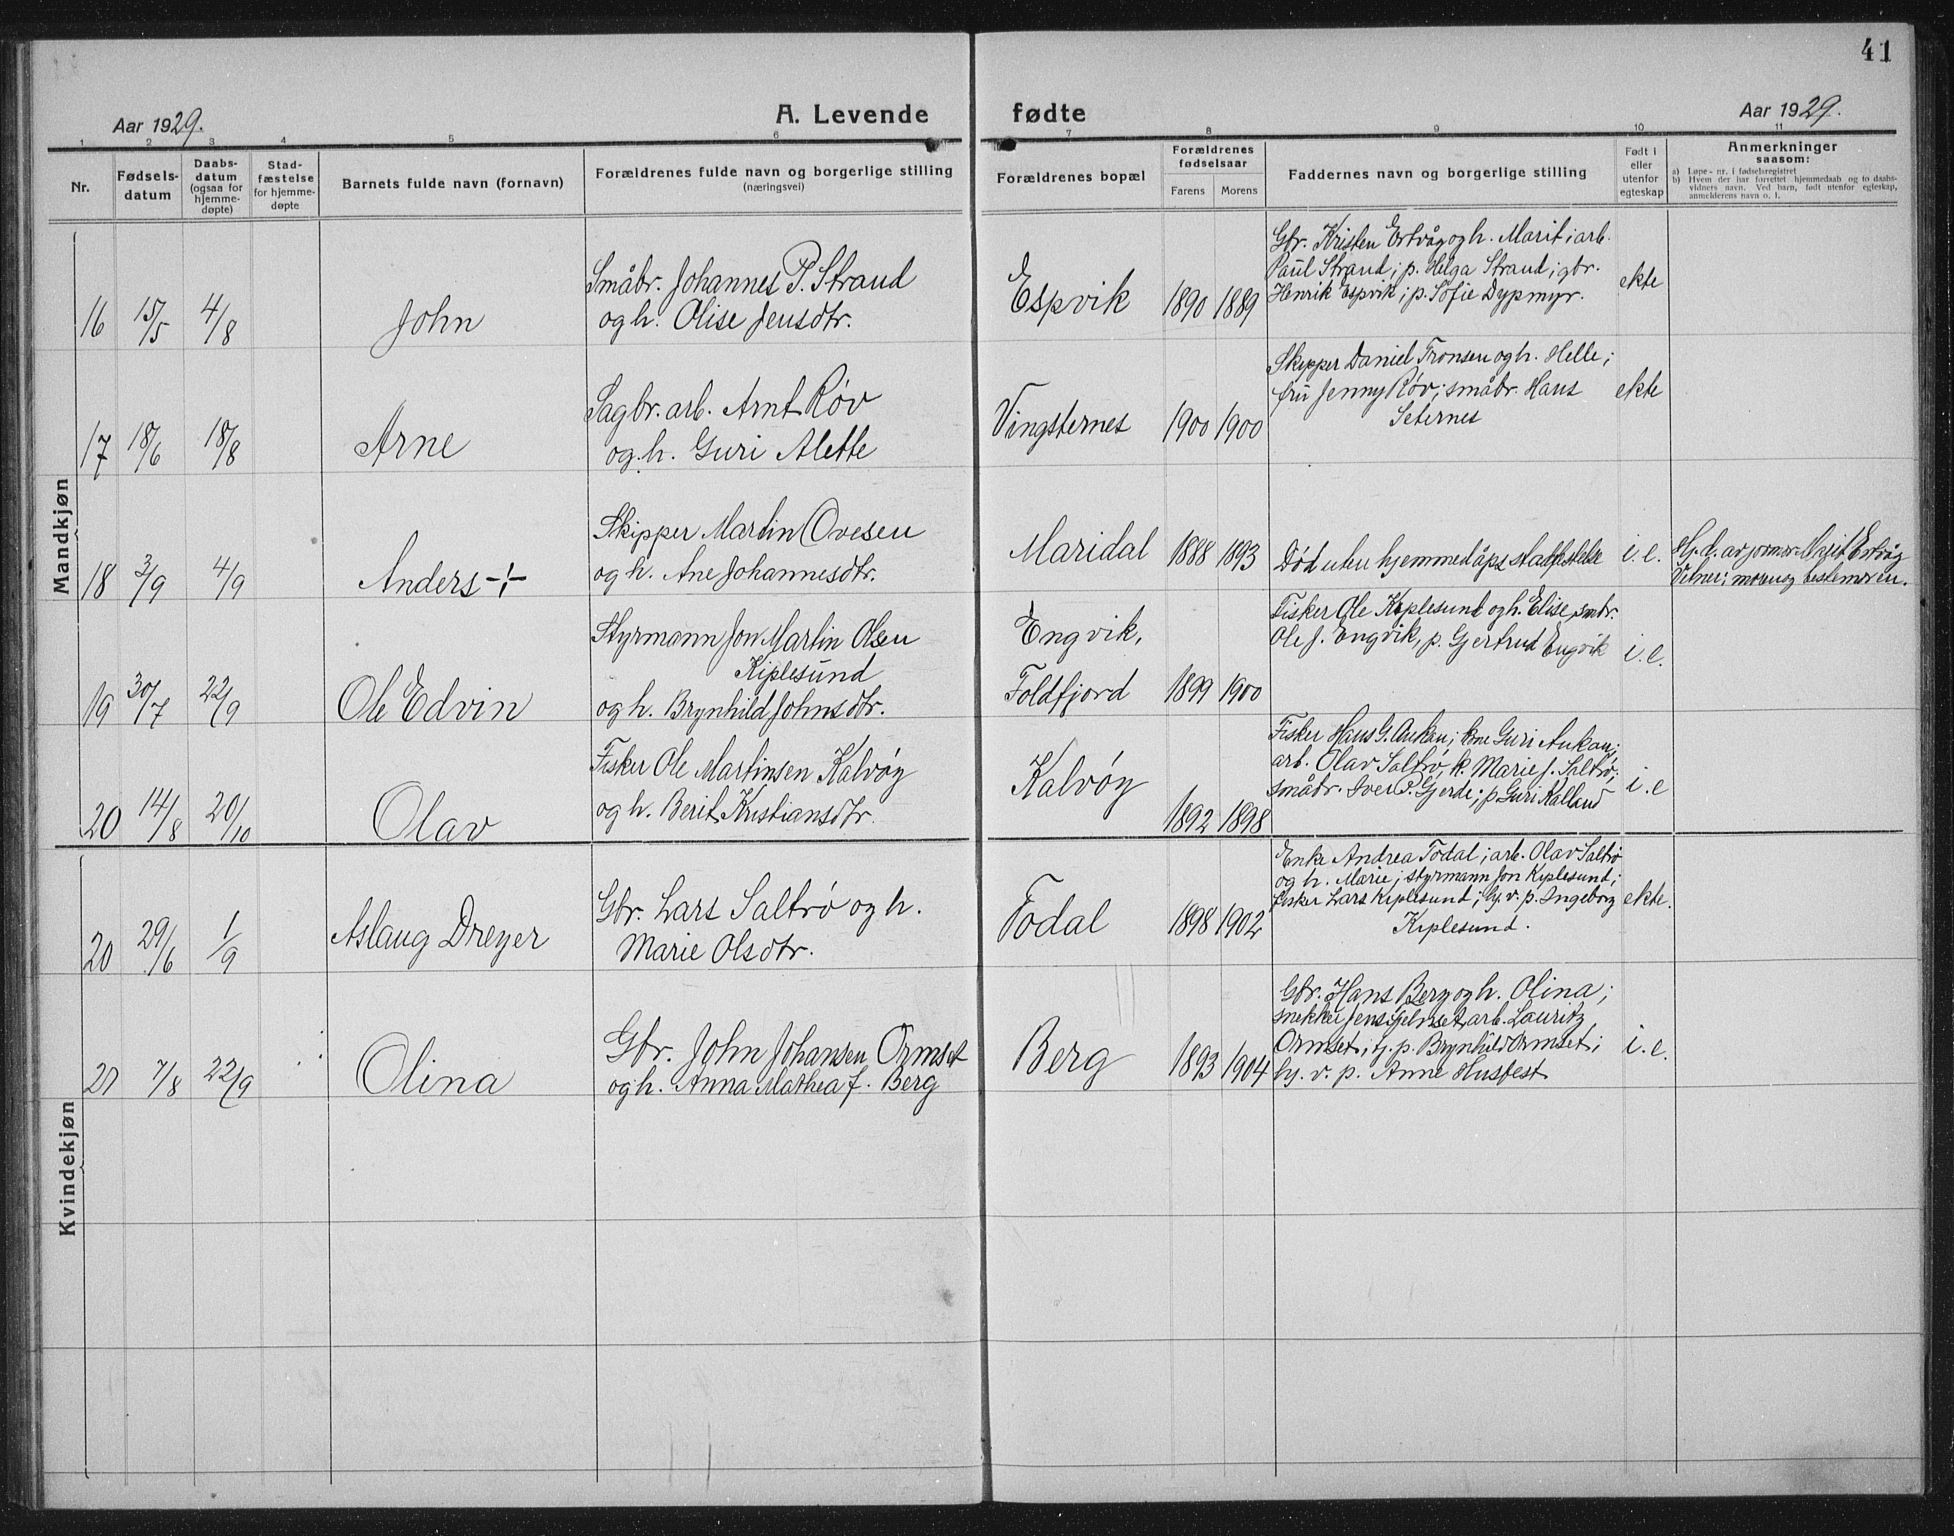 41
Aar 1929.
A. Levende
fødte
Aar 1929.
1 2 3 4 5 6 7 8 9 10 11
Nr.
Fødsels-
datum
Daabs-
datum
(ogsaa for
hjemme-
døpte)
Stad-
fæstelse
for hjemme-
døpte
Barnets fulde navn (fornavn)
Forældrenes fulde navn og borgerlige stilling
(næringsvei)
Forældrenes bopæl
Forældrenes
fødselsaar
Farens
Morens
Faddernes navn og borgerlige stilling
Født i
eller
utenfor
egteskap
Anmerkninger
saasom:
a) Løpe-nr. i fødselsregistret
b) Hvem der har forrettet hjemmedaab og to daabs-
vidners navn. Ved barn, født utenfor egteskap,
anmelderens navn o. l.
Mandkjøn
16 15/5 4/8 John
Småbr. Johannes P. Strand
og h. Olise Jensdtr.
Espvik 1890 1889
Gbr. Kristen Ertvåg og h. Marit; arb.
Paul Strand; p. Helga Strand; gbr.
Henrik Espvik; p. Sofie Dypmyr.
ekte
17 18/6 18/8 Arne
Sagbr. arb. Arnt Røv
og h. Guri Alette
Vingsternes 1900 1900
Skipper Daniel Fronsen og h. Helle;
fru Jenny Røv; småbr. Hans
Seternes
ekte
18 3/9 4/9 Anders -÷
Skipper Martin Ovesen
og h. Ane Johannesdtr.
Maridal 1888 1893
Død uten hjemmedåps stadfestelse
i. e.
Hj. d. av jormor Marit Ertvåg
Vitner: moren og bestemoren.
19 30/7 22/9 Ole Edvin
Styrmann Jon Martin Olsen
Kiplesund
og h. Brynhild Johnsdtr.
Engvik,
Foldfjord 1899 1900
Fisker Ole Kiplesund og h. Elise, smbr.
Ole J. Engvik, p. Gjertrud Engvik
i. e.
20 14/8 20/10 Olav
Fisker Ole Martinsen Kalvøy
og h. Berit Kristiansdtr.
Kalvøy 1892 1898
Fisker Hans G. Aukan; kne Guri Aukan;
arb. Olav Saltrø, k. Marie J. Saltrø;
småbr. Iver P. Gjerde; p Guri Kalland
i. e
Kvindekjøn
20 29/6 1/9 Aslaug Dreyer
Gbr. Lars Saltrø og h.
Marie Olsdtr.
Todal 1898 1902
Enke Andrea Todal; arb. Olav Saltrø
og h. Marie; styrmann Jon Kiplesund;
fisker Lars Kiplesund; hj. v. p. Ingeborg
Kiplesund.
ekte.
21 7/8 22/9 Olina
Gbr. John Johansen Ormset
og h. Anna Mathea f. Berg
Berg 1893 1904
Gbr. Hans Berg og h. Olina;
snekker Jens arb. Lauritz
Ormset; tj. p. Brynhild Ormset;
hj. v. p. Anne Husfest
i. e.